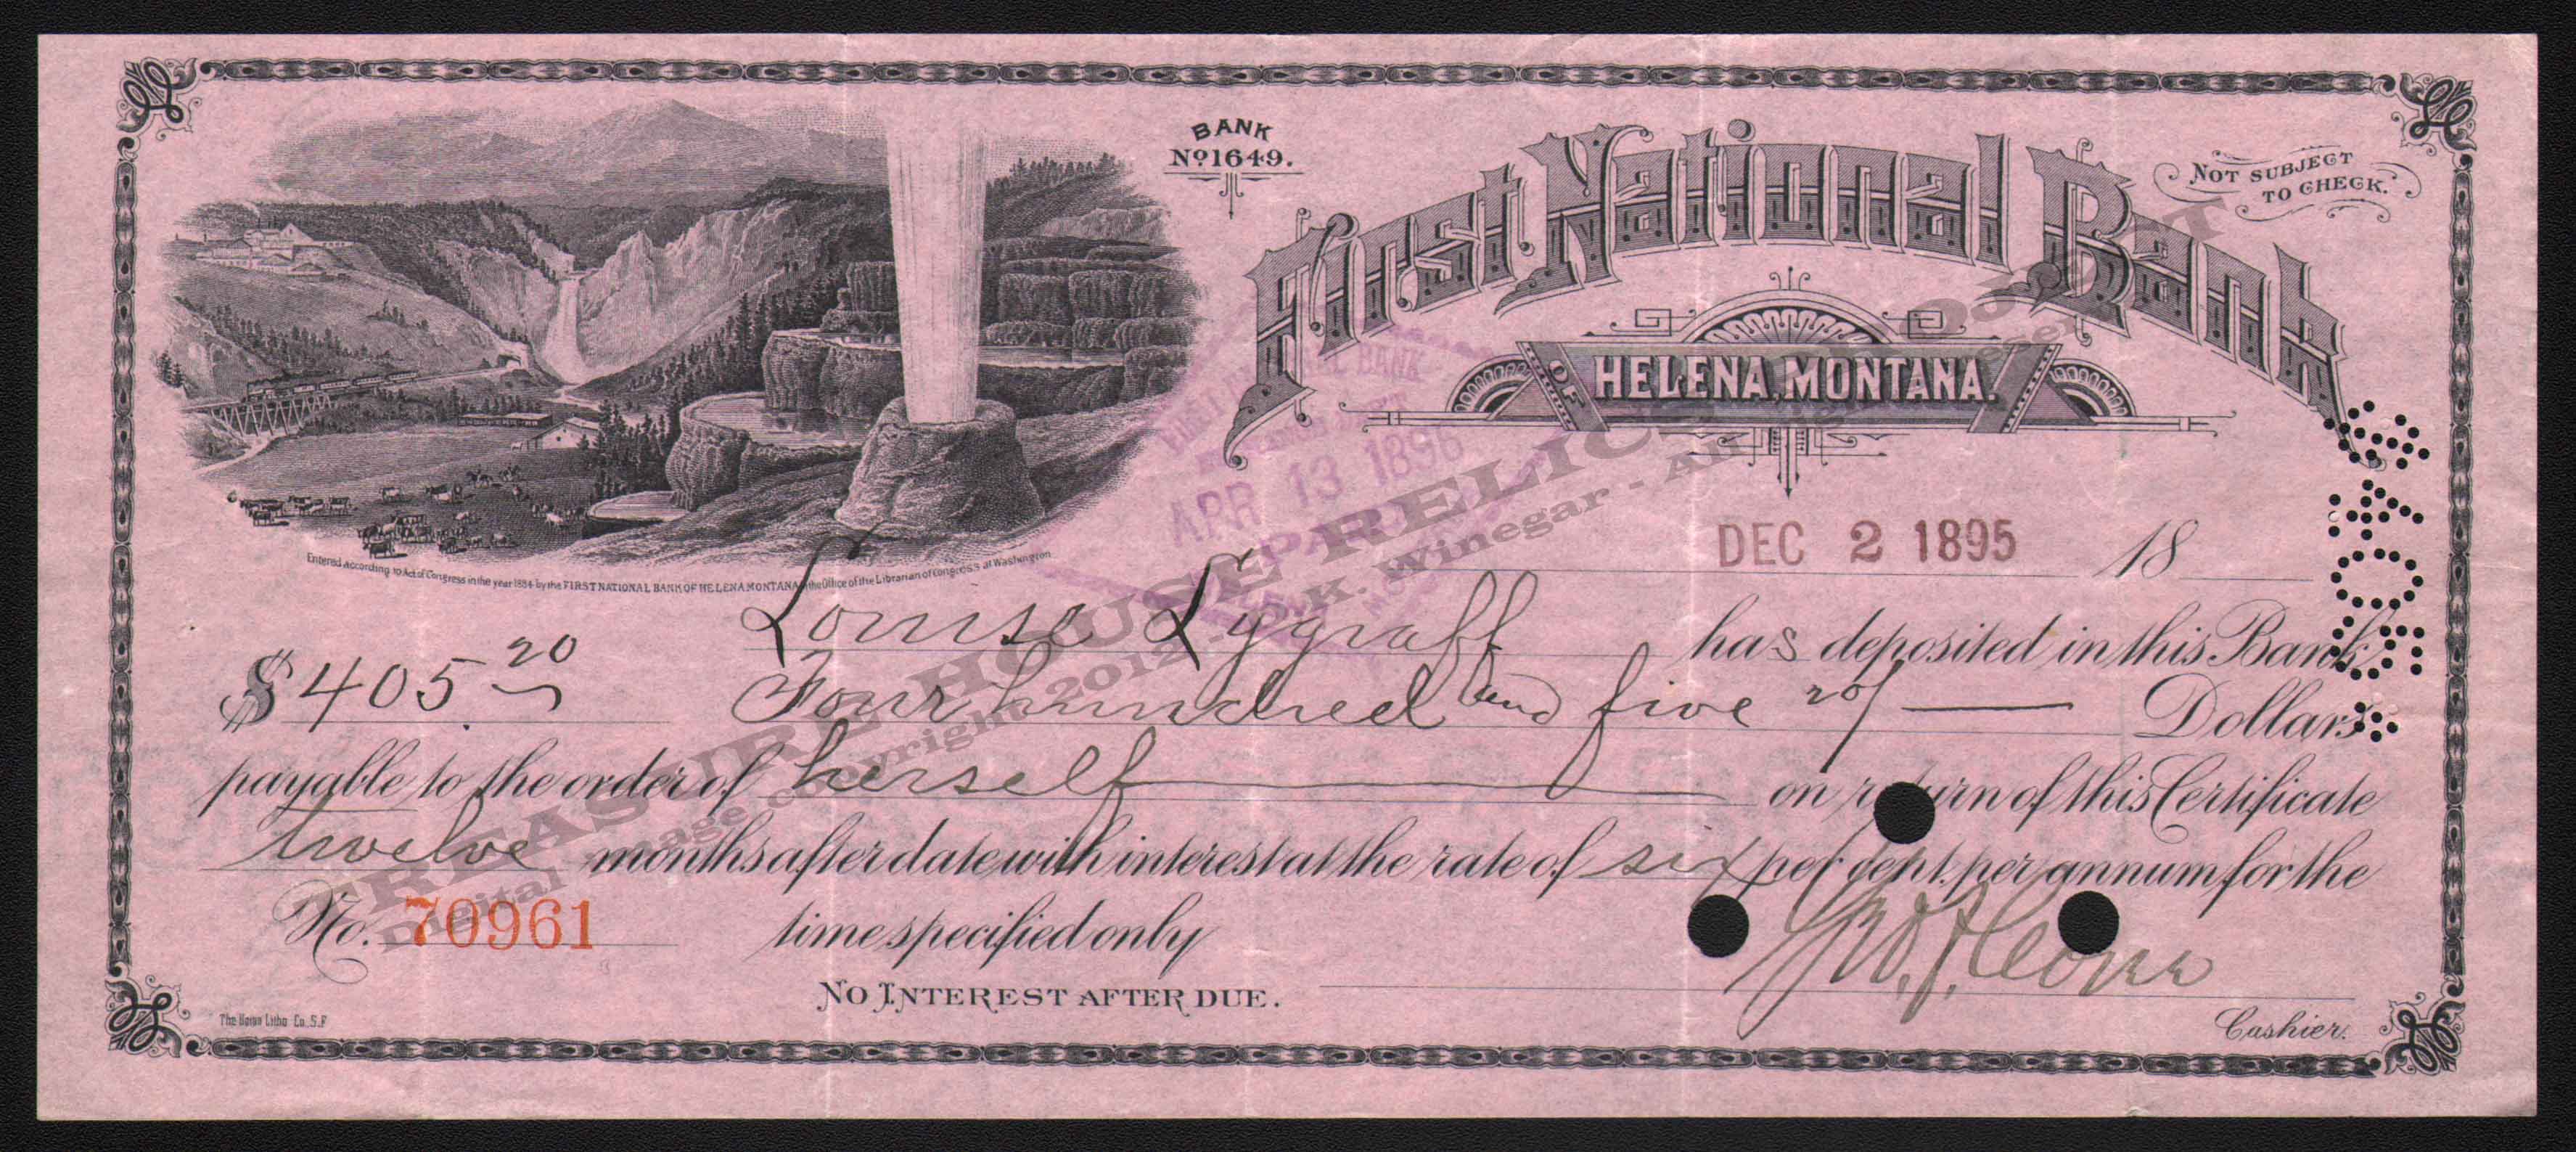 BANK
No 1649.
First National Bank
NOT SUBJECT
TO CHECK.
OF HELENA, MONTANA.
NATIONAL BANK
APR 13 1896
PAID
Entered according to Act of Congress in the year 1884 by the FIRST NATIONAL BANK OF HELENA MONTANA in the Office of the Librarian of Congress at Washington
DEC 2 1895 18
Louise Lygraff has deposited in this Bank
$405 20 Four hundred and five 20/ Dollars
payable to the order of herself on return of this Certificate
twelve months after date with interest at the rate of six per cent. per annum for the
No. 70961 time specified only
NO INTEREST AFTER DUE.
The Union Litho Co. S.F.
Cashier.
TREASURE HOUSE RELICS
Digital Image copyright 2012 - D.K. Winegar - All rights reserved